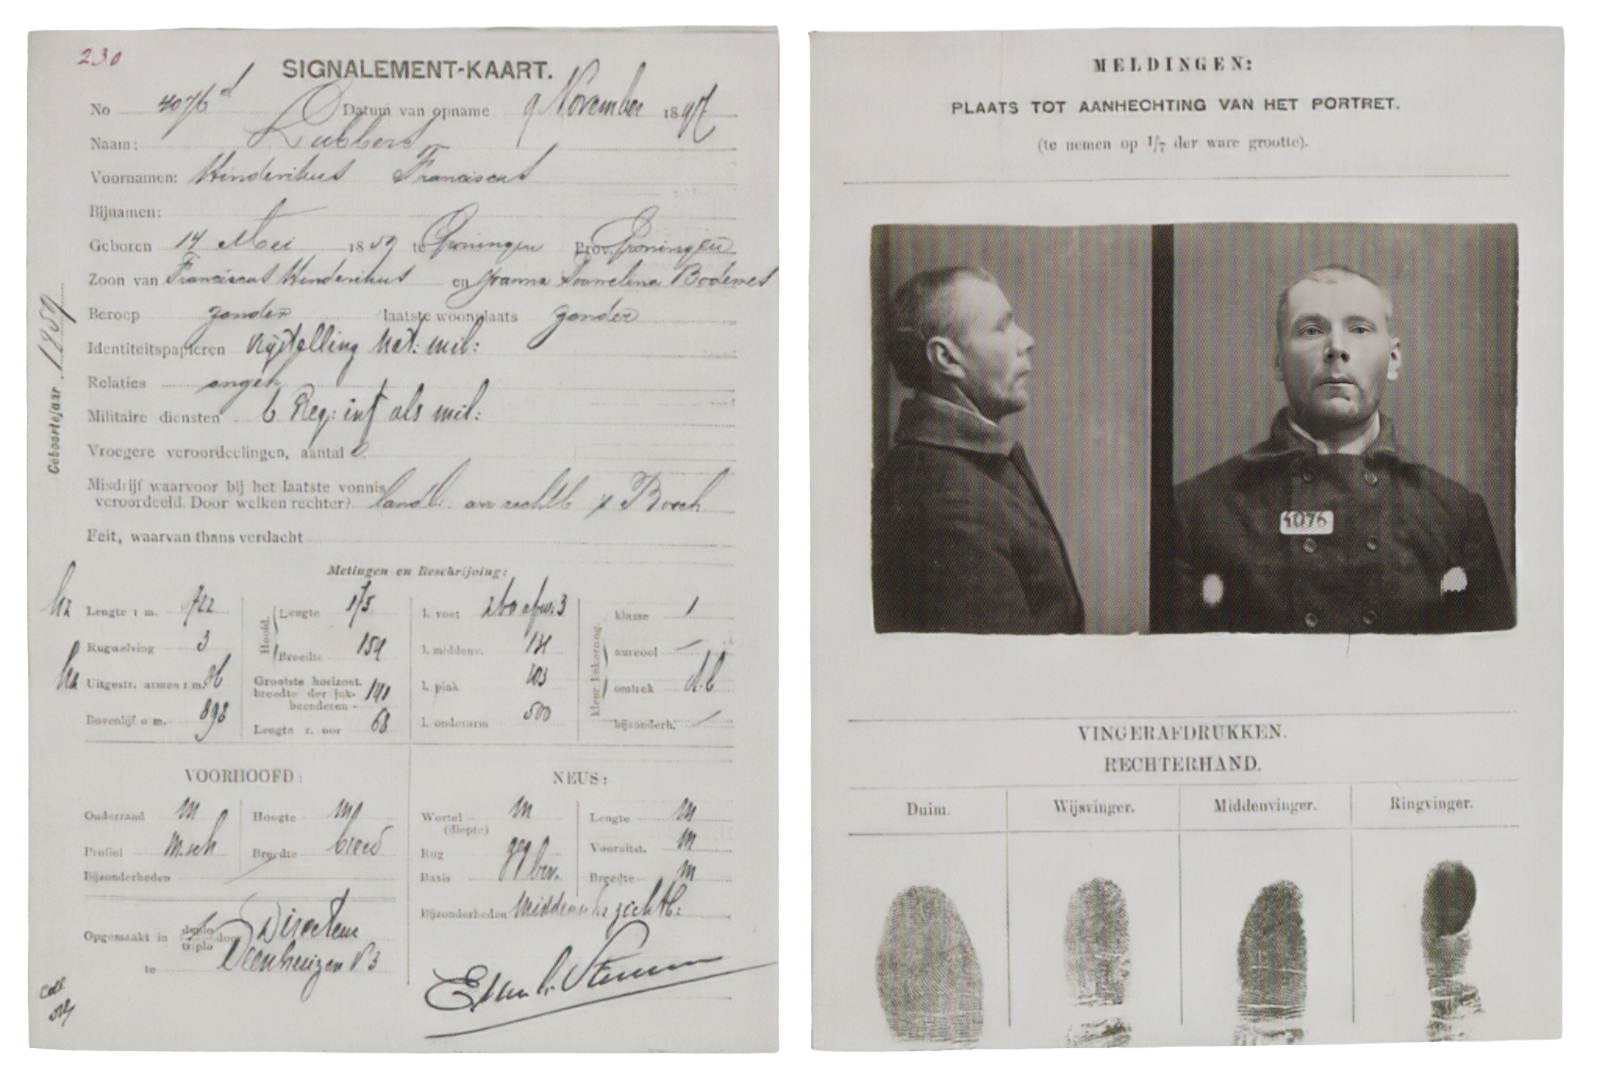 230
SIGNALEMENT-KAART.
No 4076 d Datum van opname 9 November 1897
Naam: Lubbers
Voornamen: Hinderikus Franciscus
Bijnamen:
Geboren 14 Mei 1859 te Groningen Prov. Groningen
Zoon van Franciscus Hinderikus en Joanna Bodewes
Beroep zonder laatste woonplaats zonder
Identiteitspapieren vrijstelling Nat: mil:
Relaties ongeh
Militaire diensten 6 Reg: inf als mil:
Vroegere veroordeelingen, aantal
Misdrijf waarvoor bij het laatste vonnis
veroordeeld. Door welken rechter? landl. arr rechtb
Feit, waarvan thans verdacht
Geboortejaar 1859
Metingen en Beschrijving:
Lengte 1 m. 722 Hoofd. Lengte 175 l. voet 260 afw. 3 kleur Inkerong. klasse 1
Rugwelving 3 Breedte 159 l. middenv. 121 aureool
Uitgestr. armen 1 m. 76 Grootste horizont. breedte der juk-beenderen 141 l. pink 103 omtrek d.b
Bovenlijf o m. 898 Lengte r. oor 68 l. onderarm 500 bijzonderh.
VOORHOOFD: NEUS:
Onderrand m Hoogte m Wortel (diepte) m Lengte m
Profiel m.sch Breedte breed Rug geg Vooruitst. m
Bijzonderheden Basis Breedte m
Bijzonderheden
Opgemaakt in duplo triplo door Directeur
te Veenhuizen N 3
MELDINGEN:
PLAATS TOT AANHECHTING VAN HET PORTRET.
(te nemen op 1/7 der ware grootte).
4076
VINGERAFDRUKKEN.
RECHTERHAND.
Duim. Wijsvinger. Middenvinger. Ringvinger.